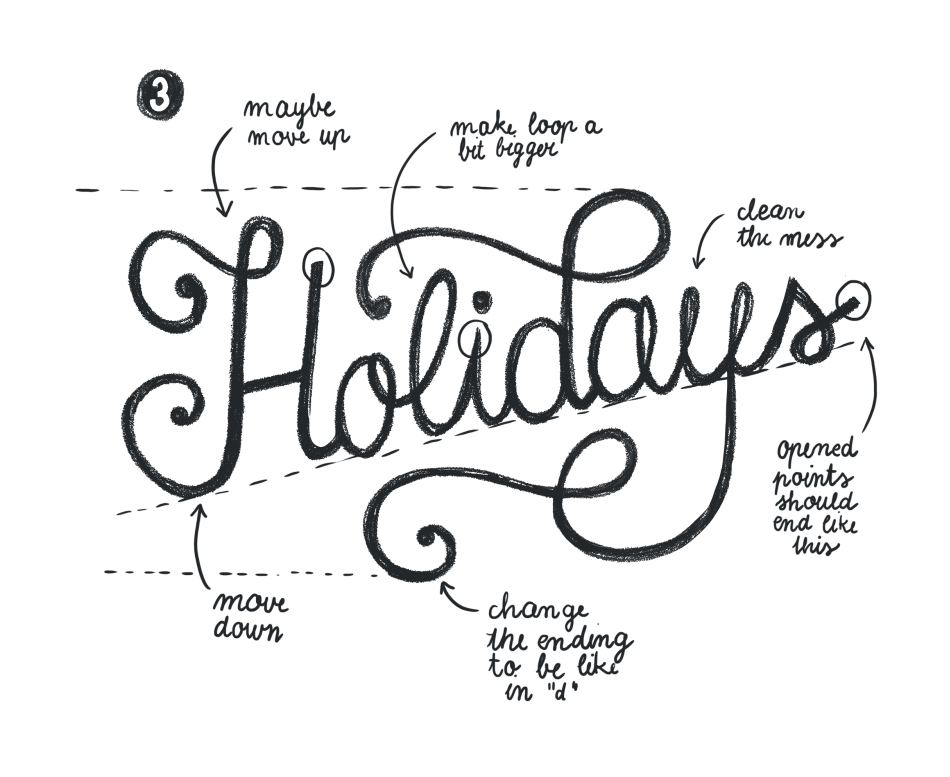 3
maybe
move up
make loop a
bit bigger
clean
the mess
Holidays
opened
points
should
end like
this
move
down
change
the ending
to be like
in "d"